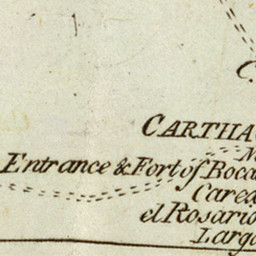 C
CARTHA
N
Entrance & Fort of Boca
Care
el Rosario
Largo